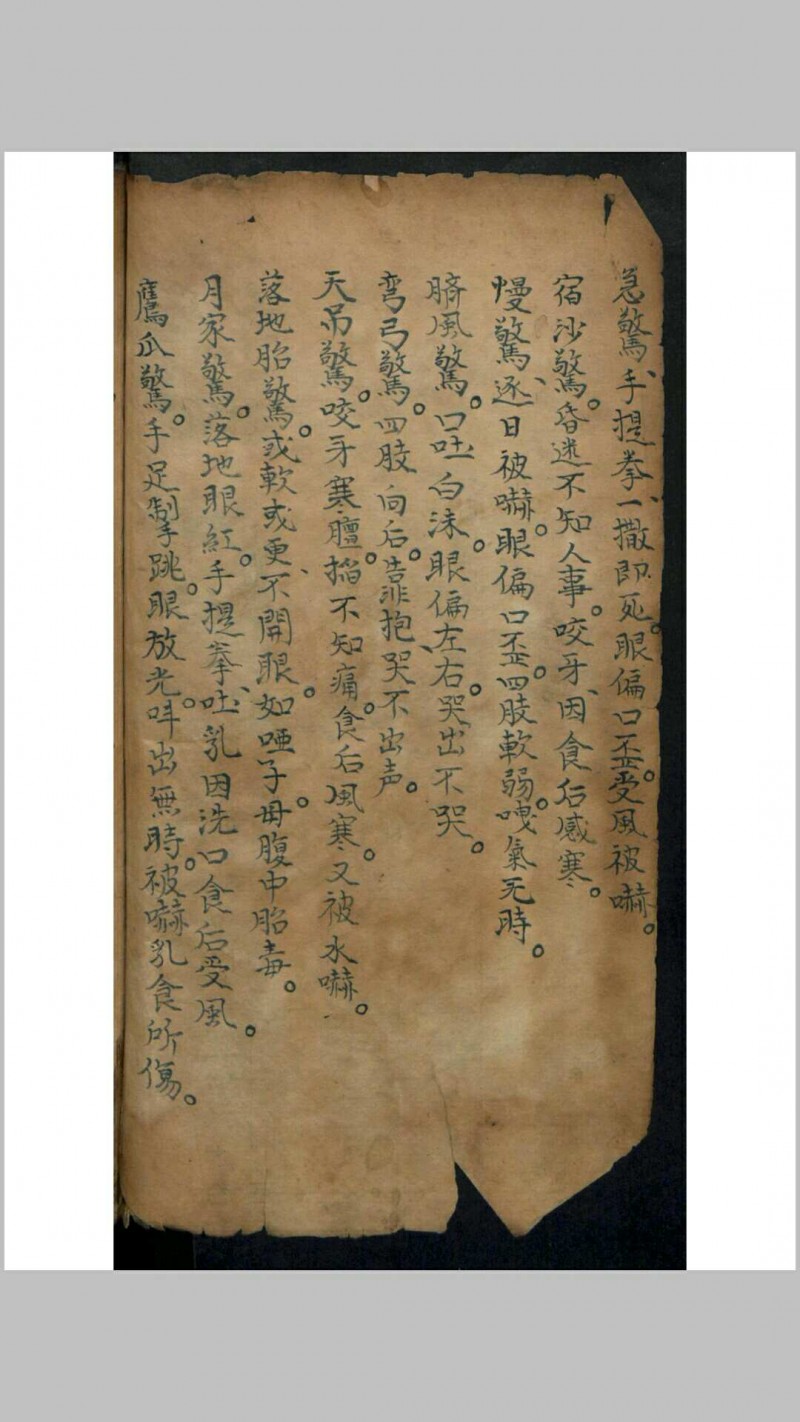 急驚、手提拳、一撒即死。眼偏口歪。受風被嚇。
宿沙驚。昏迷不知人事。咬牙、因食后感寒。
慢驚、逐日被嚇。眼偏口歪。四肢軟弱。哯氣无時。
臍風驚。口吐白沫。眼偏左右。哭出不哭。
弯弓驚。四肢向后。靠抱、哭不出声。
天吊驚。咬牙寒膻。掐不知痛。食后風寒。又被水嚇。
落地胎驚。或軟或更、不開眼。如啞子。母腹中胎毒。
月家驚。落地眼紅。手提拳、吐乳因洗口食后受風。
鷹爪驚。手足掣跳。眼放光。呌出無時。被嚇乳食所傷。